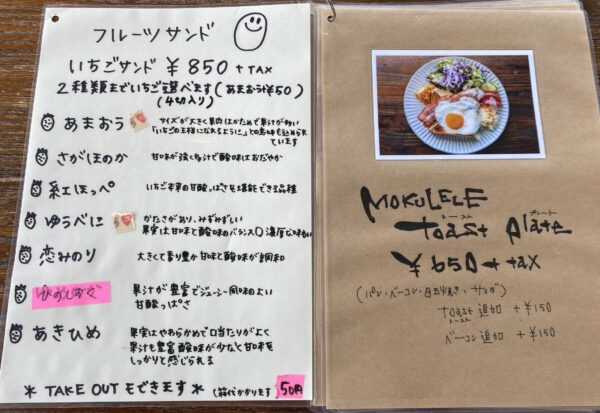 フルーツサンド
いちごサンド ¥850 +TAX
2種類までいちご選べます(あまおう+¥50)
(4切入り)
あまおう
サイズが大きく果肉はかためで果汁が多い
「いちごの王様になれるように」との意味も込められ
ています
さがほのか 甘味が強く多汁で酸味はおだやか
紅ほっぺ いちご本来の甘酸っぱさを堪能できる品種
ゆうべに
かたさがあり、みずみずしい
果実は甘味と酸味のバランス◎ 濃厚な味わい
恋みのり 大きくて香り豊か 甘味と酸味が調和
ひのしずく
果汁が豊富でジューシー 風味のよい
甘酸っぱさ
あきひめ
果実はやわらかめで口当たりがよく
果汁も豊富 酸味が少なく甘味を
しっかりと感じられる
* TAKE OUTもできます* (箱代かかります 50円
MOKULELE
トースト プレート
toast plate
¥650+tax
(パン・ベーコン・目玉焼き・サラダ)
toast追加 +¥150
トースト
ベーコン追加 +¥150